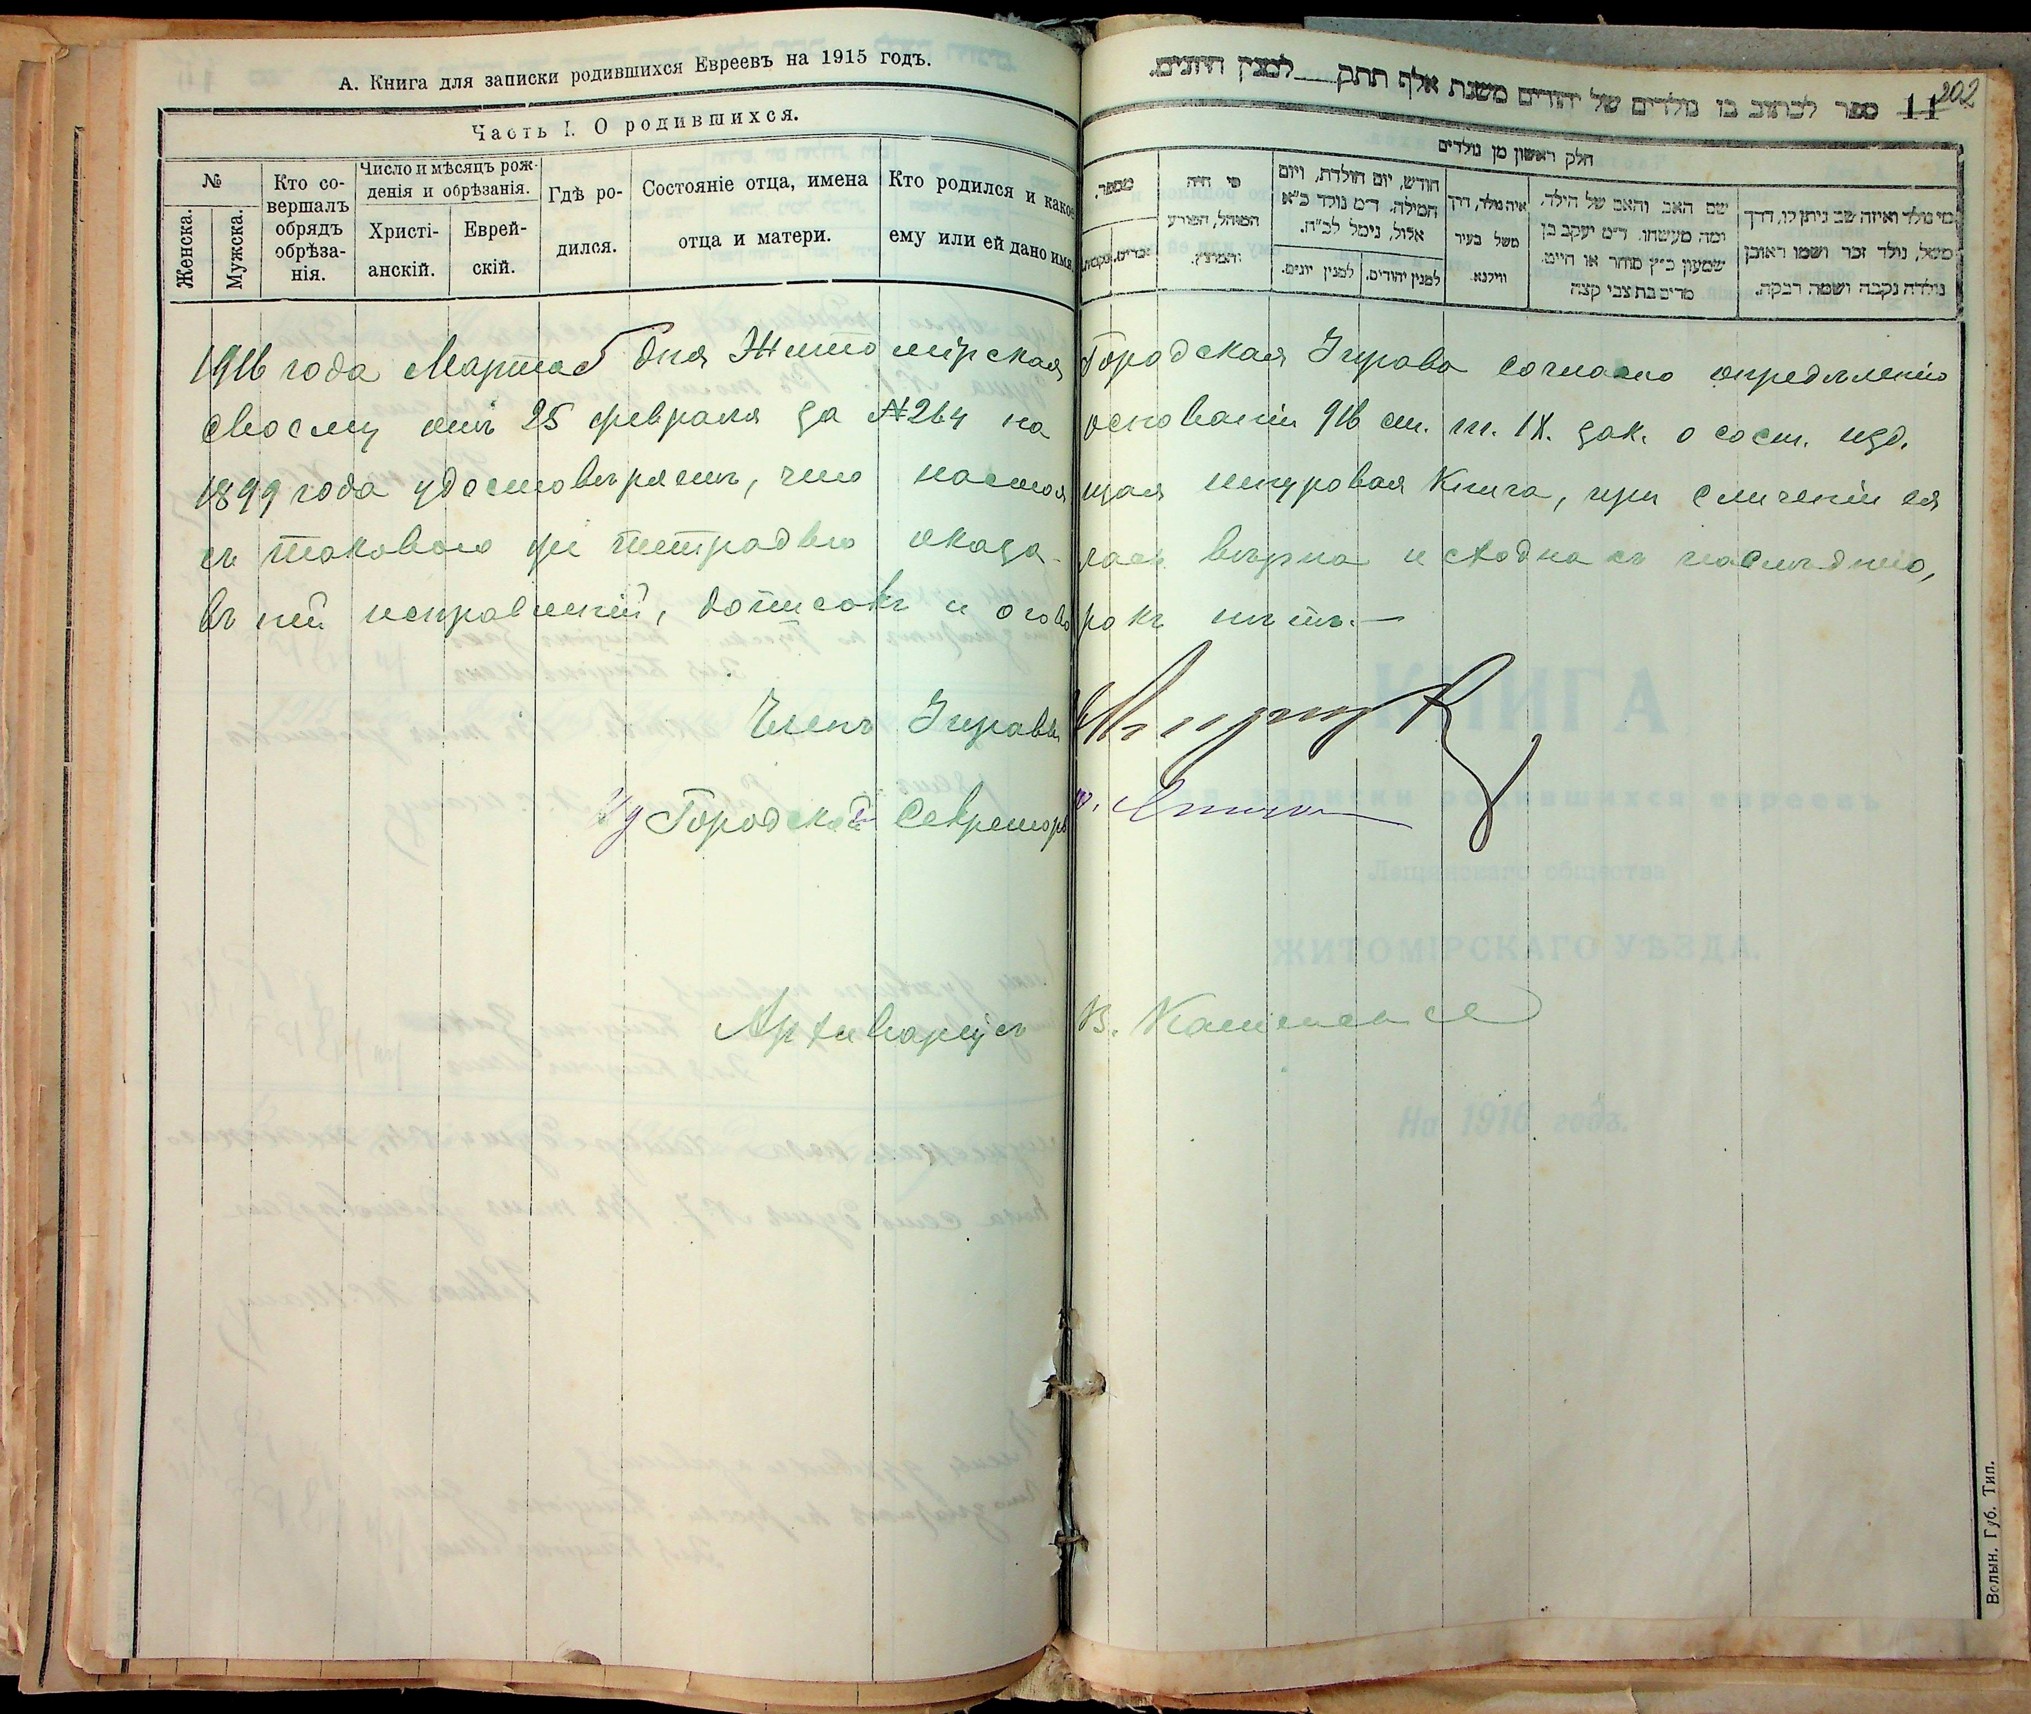 А. Книга для записки родившихся Евреевъ на 1915 годъ.
Часть I. О родившихся.
№
Женска.
Мужска.
Кто со-
вершалъ
обрядъ
обрѣза-
нія.
Число и мѣсяцъ рож-
денія и обрѣзанія.
Христі-
анскій.
Еврей-
скій.
Гдѣ ро-
дился.
Состояніе отца, имена
отца и матери.
Кто родился и какое
ему или ей дано имя.
202
11 ספר לכתוב בו נולדים של יהודים משנת אלף תתק למנין היונים.
חלק ראשון מן נולדים
מספר.
מי היה
המוהל, הפורע
והמוצץ.
חודש, יום הולדת, ויום
המילה. ד״מ נולד כ״א
אלול, נימל לכ״ח.
למנין יהודים.
למנין יונים.
איה נולד, דרך
משל בעיר
ווילנא.
שם האב והאם של הילד,
ומה מעשהו. ד״מ יעקב בן
שמעון כ״ץ סוחר או חיים.
מרים בת צבי קצה
מי נולד ואיזה שם ניתן לו, דרך
משל, נולד זכר ושמו ראובן
נולדה נקבה ושמה רבקה.
1916 года Марта 5 дня Житомірская Городская Управа согласно опредѣленію
своему отъ 25 февраля за №264 на основаніи 916 ст. т. IX. зак. о сост. изд.
1899 года удостовѣряетъ, что настоящая шнуровая Книга, при сличеніи ея
съ таковою же тетрадью оказалась вѣрна и сходна съ послѣднею,
въ ней исправленій, дописокъ и оговорокъ нѣтъ.—
Членъ Управы
Ид Городской Секретарь
Архиваріусъ В.
КНИГА
для записки родившихся евреевъ
Лещинскаго общества
ЖИТОМІРСКАГО УѢЗДА.
На 1916 годъ.
Волын. Губ. Тип.